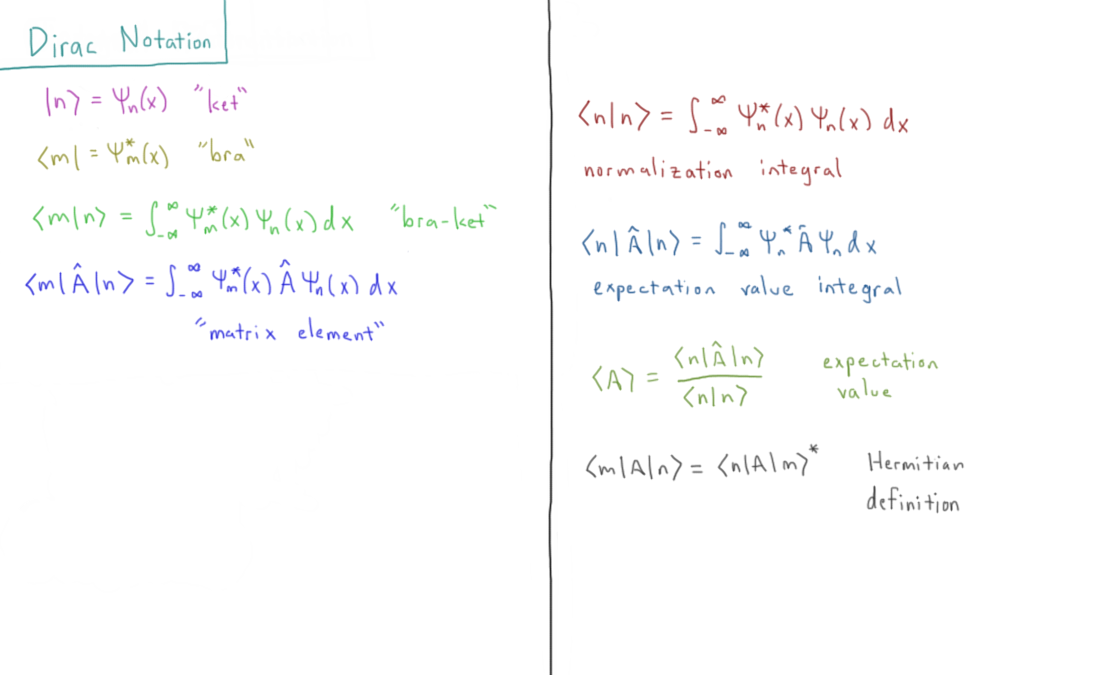 Dirac Notation
|n⟩ = Ψn(x) "ket"
⟨m| = Ψm*(x) "bra"
⟨m|n⟩ = ∫-∞^∞ Ψm*(x) Ψn(x) dx "bra-ket"
⟨m|Â|n⟩ = ∫-∞^∞ Ψm*(x) Â Ψn(x) dx
"matrix element"
⟨n|n⟩ = ∫-∞^∞ Ψn*(x) Ψn(x) dx
normalization integral
⟨n|Â|n⟩ = ∫-∞^∞ Ψn* Â Ψn dx
expectation value integral
⟨A⟩ = ⟨n|Â|n⟩ / ⟨n|n⟩ expectation
value
⟨m|A|n⟩ = ⟨n|A|m⟩* Hermitian
definition